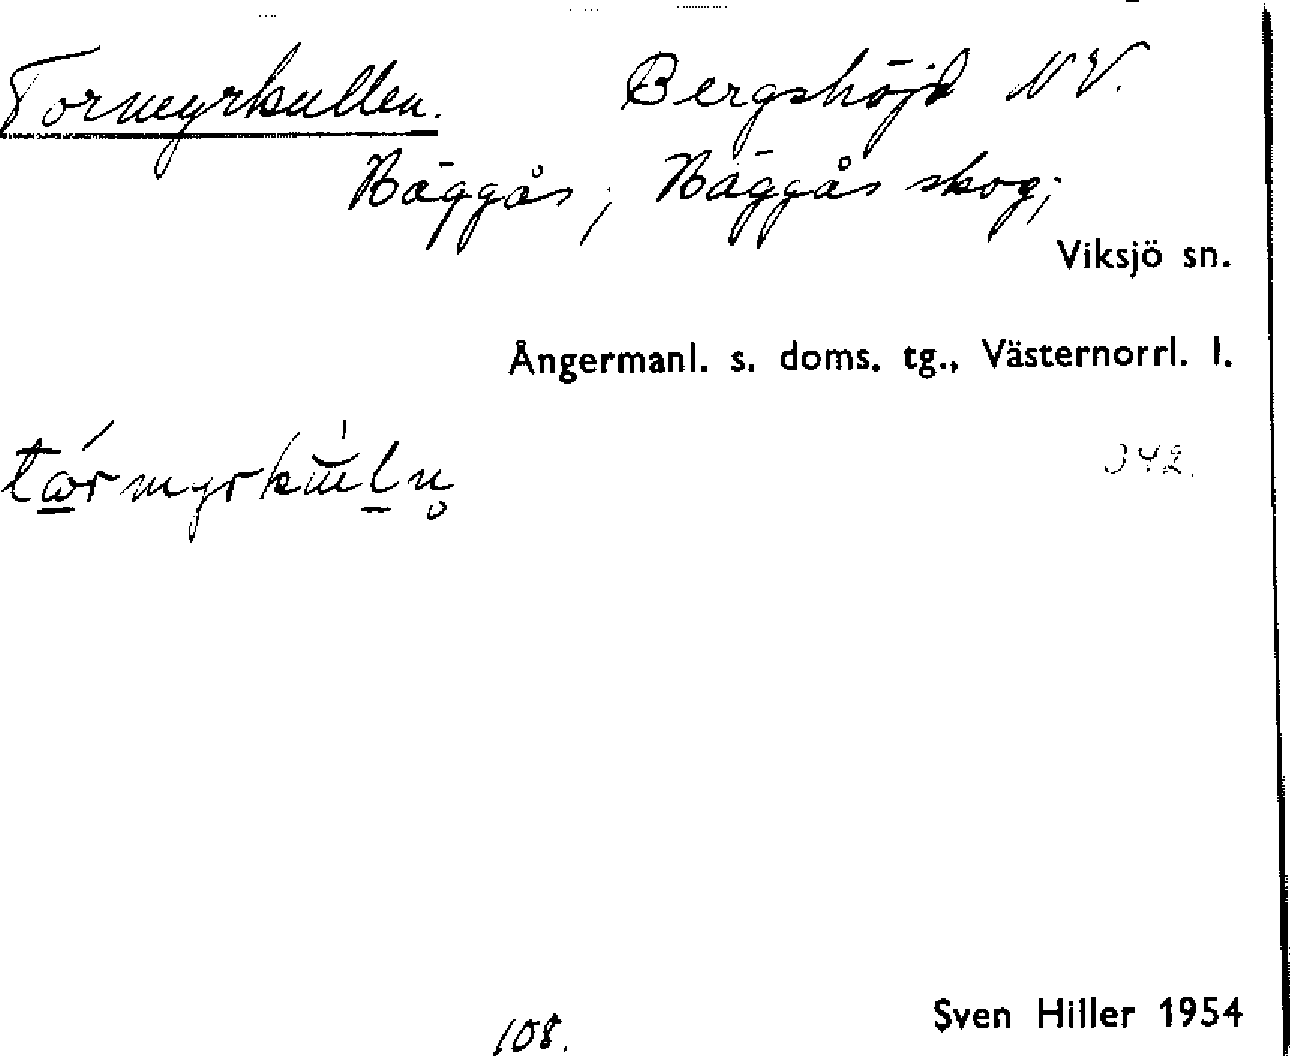 Tormyrkullen. Bergshöjd NV.
Häggås; Häggås skog;
Viksjö sn.
Ångermanl. s. doms. tg., Västernorrl. l.
342.
108.
Sven Hiller 1954